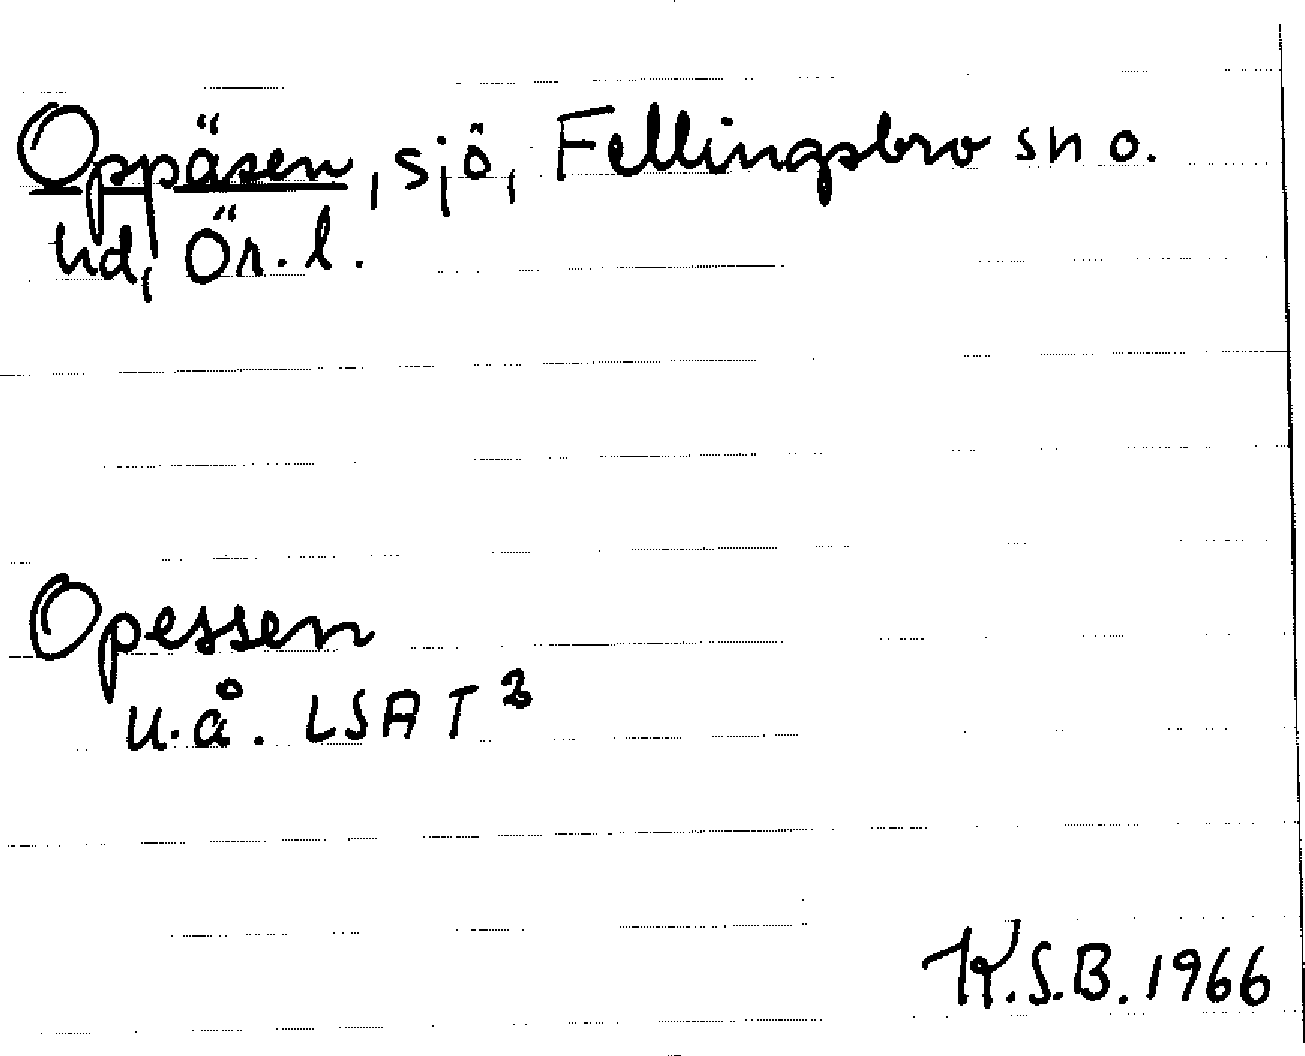 Oppäsen, sjö, Fellingsbro sn o.
hd, Ör. l.
Opessen
u.å. LSA T³
K.S.B. 1966